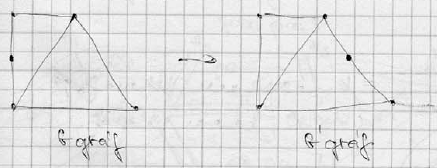 G gráf G' gráf